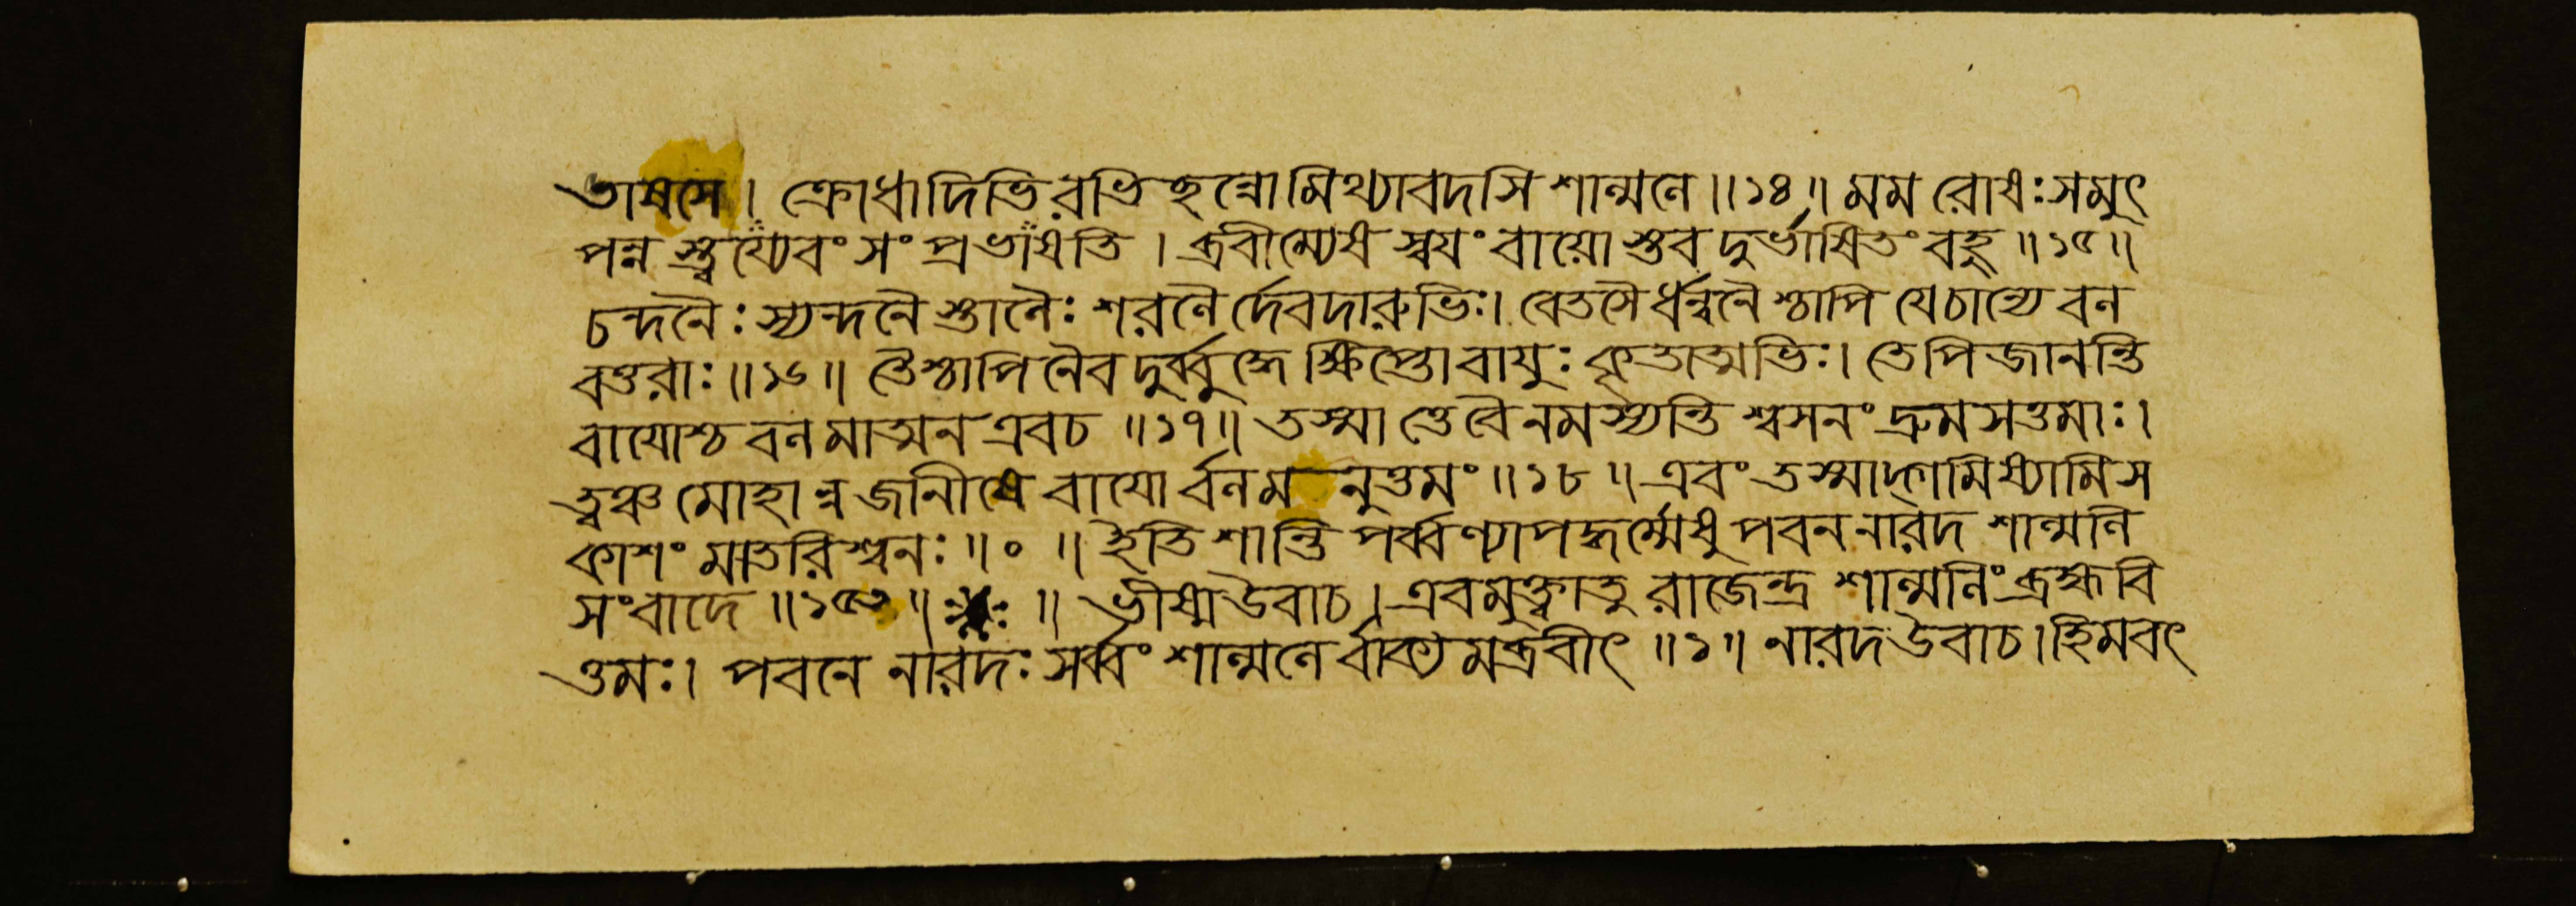 ভাষসে। ক্রোধাদিভিরভিছন্নোমিথ্যাবদসি শাল্মলে॥১৪॥ মম রোষঃ সমুৎ
পন্ন স্ত্বয্যেবং সংপ্রভাষতি। ব্রবীম্যেষ স্বযং বাযো স্তব দুর্ভাষিতং বহু॥১৫॥
চন্দনৈঃ স্যন্দনৈ স্তালৈঃ শরলৈ র্দেবদারুভিঃ। বেতসৈ র্ধন্বনৈ শ্চাপি যেচান্যে বল
বত্তরাঃ॥১৬॥ তৈশ্চাপি নৈব দুর্ব্বুদ্ধে ক্ষিপ্তোবাযুঃ কৃতাত্মভিঃ। তেপি জানন্তি
বাযোশ্চ বলমাত্মন এবচ॥১৭॥ তস্মা ত্তেবৈনমস্যন্তি শ্বসনং দ্রুমসত্তমাঃ।
ত্বঞ্চ মোহান্ন জানীষে বাযোর্বলম নুত্তমং॥১৮॥ এবং তস্মাদ্গমিষ্যামি স
কাশং মাতরিশ্বনঃ॥০॥ ইতি শান্তি পর্ব্বণ্যাপদ্ধর্ম্মেষু পবন নারদ শাল্মলি
সংবাদে॥১৫৩॥ ॥ ভীষ্মউবাচ। এবমুক্ত্বাতু রাজেন্দ্র শাল্মলিং ব্রহ্মবি
ত্তমঃ। পবনে নারদঃ সর্ব্বং শাল্মলে র্বাক্য মব্রবীৎ॥১॥ নারদউবাচ। হিমবৎ